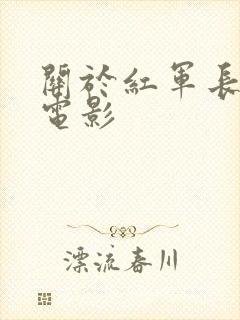 關於紅軍長
電影
漂流春川